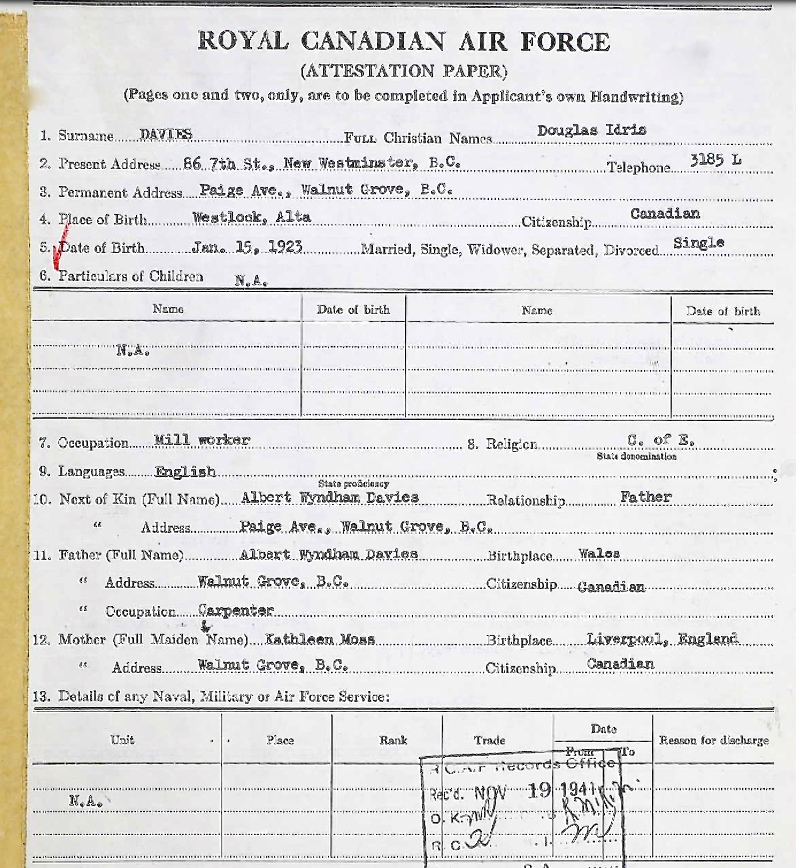 ROYAL CANADIAN AIR FORCE
(ATTESTATION PAPER)
(Pages one and two, only, are to be completed in Applicant's own Handwriting)
1. Surname DAVIES FULL Christian Names Douglas Idris
2. Present Address 66 7th St., New Westminster, B.C. Telephone 3185 L
3. Permanent Address Paige Ave., Walnut Grove, B.C.
4. Place of Birth Westlock, Alta Citizenship Canadian
5. Date of Birth Jan. 15, 1923 Married, Single, Widower, Separated, Divorced Single
6. Particulars of Children N.A.
Name Date of birth Name Date of birth
N.A.
7. Occupation Mill worker 8. Religion C. of E.
State denomination
9. Languages English
State proficiency
10. Next of Kin (Full Name) Albert Wyndham Davies Relationship Father
" Address Paige Ave., Walnut Grove, B.C.
11. Father (Full Name) Albert Wyndham Davies Birthplace Wales
" Address Walnut Grove, B.C. Citizenship Canadian
" Occupation Carpenter
12. Mother (Full Maiden Name) Kathleen Moss Birthplace Liverpool, England
" Address Walnut Grove, B.C. Citizenship Canadian
13. Details of any Naval, Military or Air Force Service:
Unit Place Rank Trade Date Reason for discharge
From To
R.C.A.F Records Office
Rec'd. NOV 19 1941
N.A.
O. K.
R C